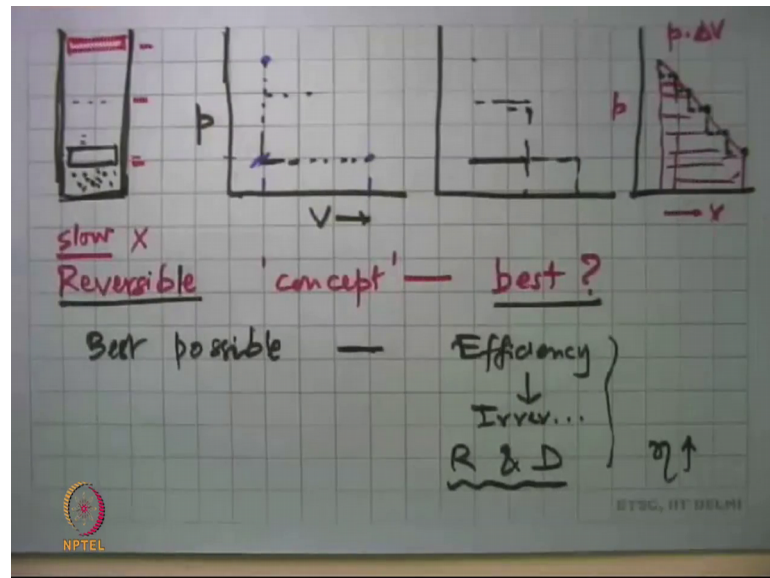 p . ΔV
p
p
V →
→ V
slow X
Reversible 'concept' — best ?
Best possible — Efficiency
↓
Irrev...
R & D η↑
ETSC, IIT DELHI
NPTEL